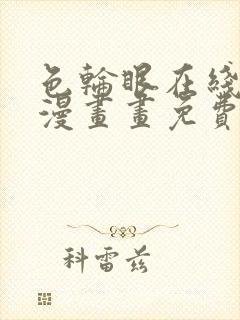 色輪眼在綫
漫畫畫免費
科雷茲